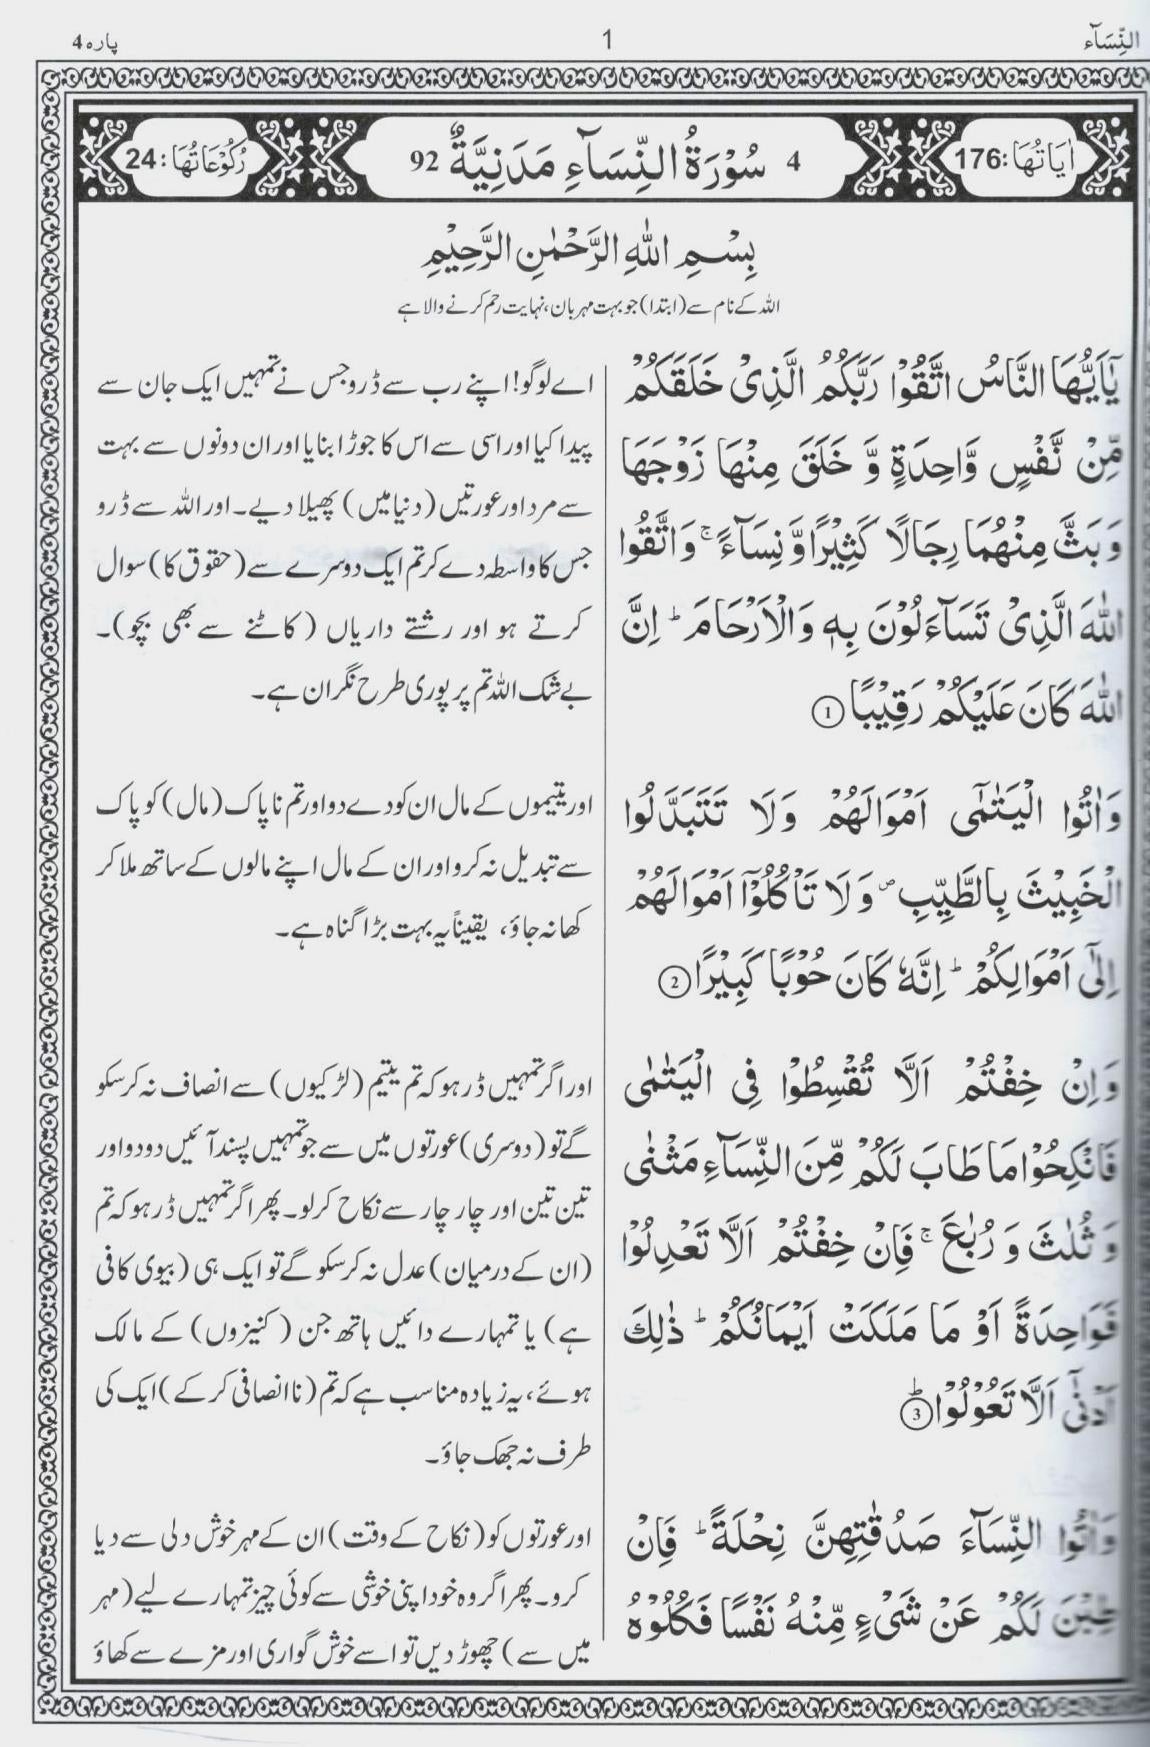 النِّسَآء
1
پارہ 4
اٰيَاتُهَا: 176
4 سُوْرَةُ النِّسَآءِ مَدَنِيَّةٌ 92
رُكُوْعَاتُهَا: 24
بِسْمِ اللّٰهِ الرَّحْمٰنِ الرَّحِيْمِ
اللہ کے نام سے (ابتدا) جو بہت مہربان، نہایت رحم کرنے والا ہے
يٰٓاَيُّهَا النَّاسُ اتَّقُوْا رَبَّكُمُ الَّذِىْ خَلَقَكُمْ
مِّنْ نَّفْسٍ وَّاحِدَةٍ وَّ خَلَقَ مِنْهَا زَوْجَهَا
وَ بَثَّ مِنْهُمَا رِجَالًا كَثِيْرًا وَّ نِسَآءً ۚ وَ اتَّقُوا
اللّٰهَ الَّذِىْ تَسَآءَلُوْنَ بِهٖ وَ الْاَرْحَامَ ؕ اِنَّ
اللّٰهَ كَانَ عَلَيْكُمْ رَقِيْبًا ①
اے لوگو! اپنے رب سے ڈرو جس نے تمہیں ایک جان سے
پیدا کیا اور اسی سے اس کا جوڑا بنایا اور ان دونوں سے بہت
سے مرد اور عورتیں (دنیا میں) پھیلا دیے۔ اور اللہ سے ڈرو
جس کا واسطہ دے کر تم ایک دوسرے سے (حقوق کا) سوال
کرتے ہو اور رشتے داریاں (کاٹنے سے بھی بچو)۔
بے شک اللہ تم پر پوری طرح نگران ہے۔
وَ اٰتُوا الْيَتٰمٰٓى اَمْوَالَهُمْ وَ لَا تَتَبَدَّلُوا
الْخَبِيْثَ بِالطَّيِّبِ ۪ وَ لَا تَاْكُلُوْٓا اَمْوَالَهُمْ
اِلٰٓى اَمْوَالِكُمْ ؕ اِنَّهٗ كَانَ حُوْبًا كَبِيْرًا ②
اور یتیموں کے مال ان کو دے دو اور تم ناپاک (مال) کو پاک
سے تبدیل نہ کرو اور ان کے مال اپنے مالوں کے ساتھ ملا کر
کھا نہ جاؤ، یقیناً یہ بہت بڑا گناہ ہے۔
وَ اِنْ خِفْتُمْ اَلَّا تُقْسِطُوْا فِى الْيَتٰمٰى
فَانْكِحُوْا مَا طَابَ لَكُمْ مِّنَ النِّسَآءِ مَثْنٰى
وَ ثُلٰثَ وَ رُبٰعَ ۚ فَاِنْ خِفْتُمْ اَلَّا تَعْدِلُوْا
فَوَاحِدَةً اَوْ مَا مَلَكَتْ اَيْمَانُكُمْ ؕ ذٰلِكَ
اَدْنٰٓى اَلَّا تَعُوْلُوْا ③ؕ
اور اگر تمہیں ڈر ہو کہ تم یتیم (لڑکیوں) سے انصاف نہ کر سکو
گے تو (دوسری) عورتوں میں سے جو تمہیں پسند آئیں دو دو اور
تین تین اور چار چار سے نکاح کر لو۔ پھر اگر تمہیں ڈر ہو کہ تم
(ان کے درمیان) عدل نہ کر سکو گے تو ایک ہی (بیوی کافی
ہے) یا تمہارے دائیں ہاتھ جن (کنیزوں) کے مالک
ہوئے، یہ زیادہ مناسب ہے کہ تم (ناانصافی کر کے) ایک کی
طرف نہ جھک جاؤ۔
وَ اٰتُوا النِّسَآءَ صَدُقٰتِهِنَّ نِحْلَةً ؕ فَاِنْ
طِبْنَ لَكُمْ عَنْ شَىْءٍ مِّنْهُ نَفْسًا فَكُلُوْهُ
اور عورتوں کو (نکاح کے وقت) ان کے مہر خوش دلی سے دیا
کرو۔ پھر اگر وہ خود اپنی خوشی سے کوئی چیز تمہارے لیے (مہر
میں سے) چھوڑ دیں تو اسے خوش گواری اور مزے سے کھاؤ